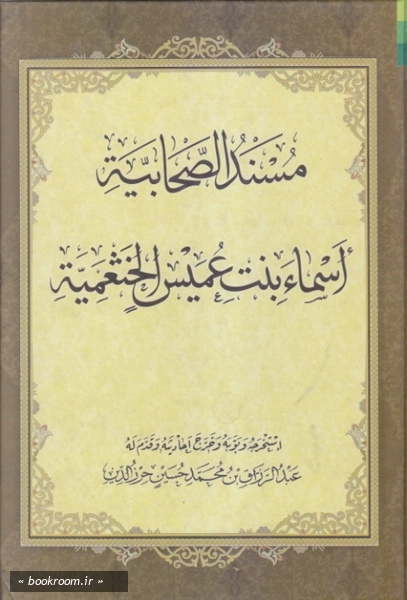 مُسْنَدُ الصَّحَابِيَّةِ
أَسْمَاءَ بِنْتِ عُمَيْسٍ الخَثْعَمِيَّةِ
اسْتَخْرَجَهُ وَبَوَّبَهُ وَخَرَّجَ أَحَادِيثَهُ وَقَدَّمَ لَهُ
عَبْدُ الرَّزَّاقِ بْنُ مُحَمَّد حُسَيْن حِرْزِ الدِّين
» bookroom.ir «